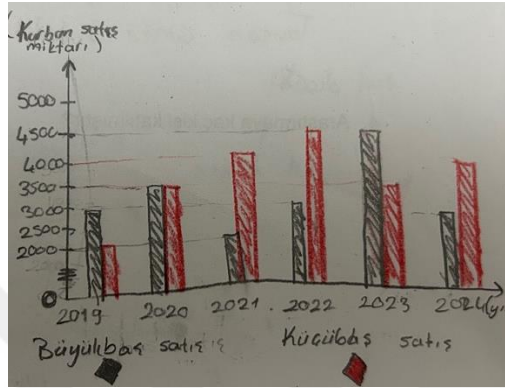 (Kurban satış
miktarı)
5000
4500
4000
3500
3000
2500
2000
0
2019 2020 2021 2022 2023 2024 (yı
Büyükbaş satış Küçübaş satış